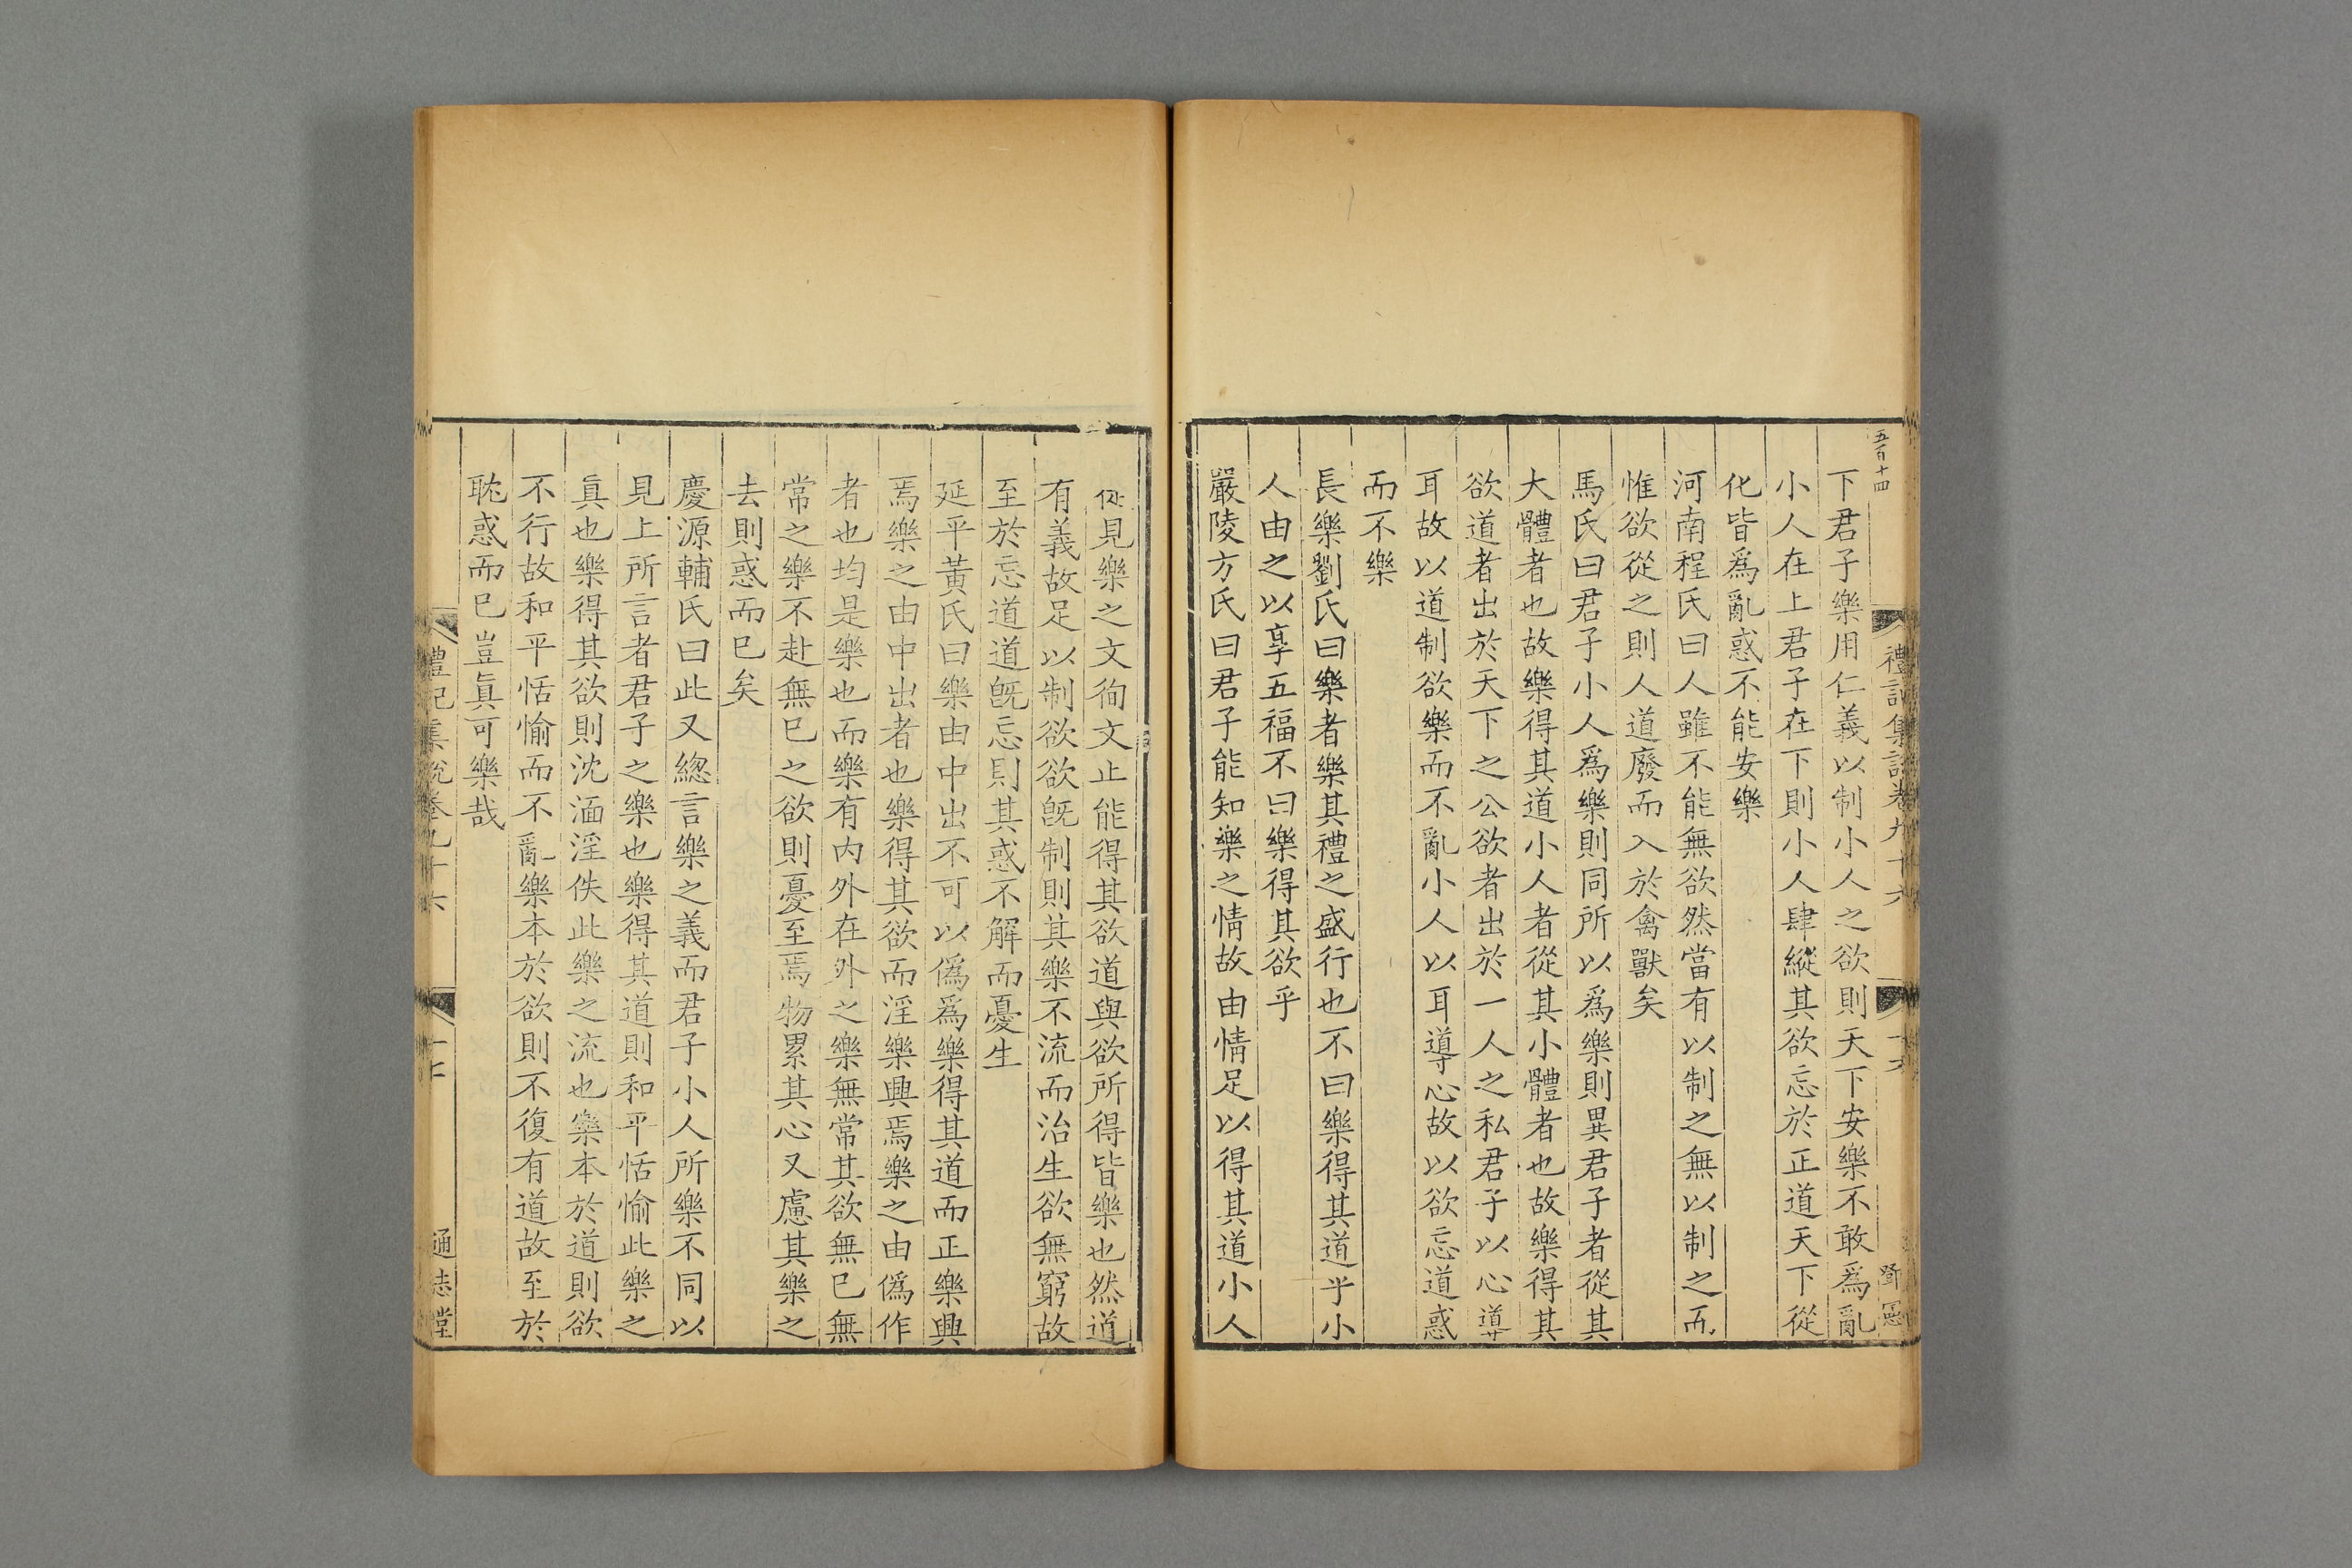 五百十四
下君子樂用仁義以制小人之欲則天下安樂不敢爲亂
小人在上君子在下則小人肆縱其欲忘於正道天下從
化皆爲亂惑不能安樂
河南程氏曰人雖不能無欲然當有以制之無以制之而
惟欲從之則人道廢而入於禽獸矣
馬氏曰君子小人爲樂則同所以爲樂則異君子者從其
大體者也故樂得其道小人者從其小體者也故樂得其
欲道者出於天下之公欲者出於一人之私君子以心導
耳故以道制欲樂而不亂小人以耳導心故以欲忘道惑
而不樂
長樂劉氏曰樂者樂其禮之盛行也不曰樂得其道乎小
人由之以享五福不曰樂得其欲乎
嚴陵方氏曰君子能知樂之情故由情足以得其道小人
徒見樂之文徇文止能得其欲道與欲所得皆樂也然道
有義故足以制欲欲旣制則其樂不流而治生欲無窮故
至於忘道道旣忘則其惑不解而憂生
延平黃氏曰樂由中出不可以僞爲樂得其道而正樂興
焉樂之由中出者也樂得其欲而淫樂興焉樂之由僞作
者也均是樂也而樂有內外在外之樂無常其欲無已無
常之樂不赴無已之欲則憂至焉物累其心又慮其樂之
去則惑而已矣
慶源輔氏曰此又緫言樂之義而君子小人所樂不同以
見上所言者君子之樂也樂得其道則和平恬愉此樂之
眞也樂得其欲則沈湎淫佚此樂之流也樂本於道則欲
不行故和平恬愉而不亂樂本於欲則不復有道故至於
耽惑而已豈眞可樂哉
禮記集說卷九十六
十七
通志堂